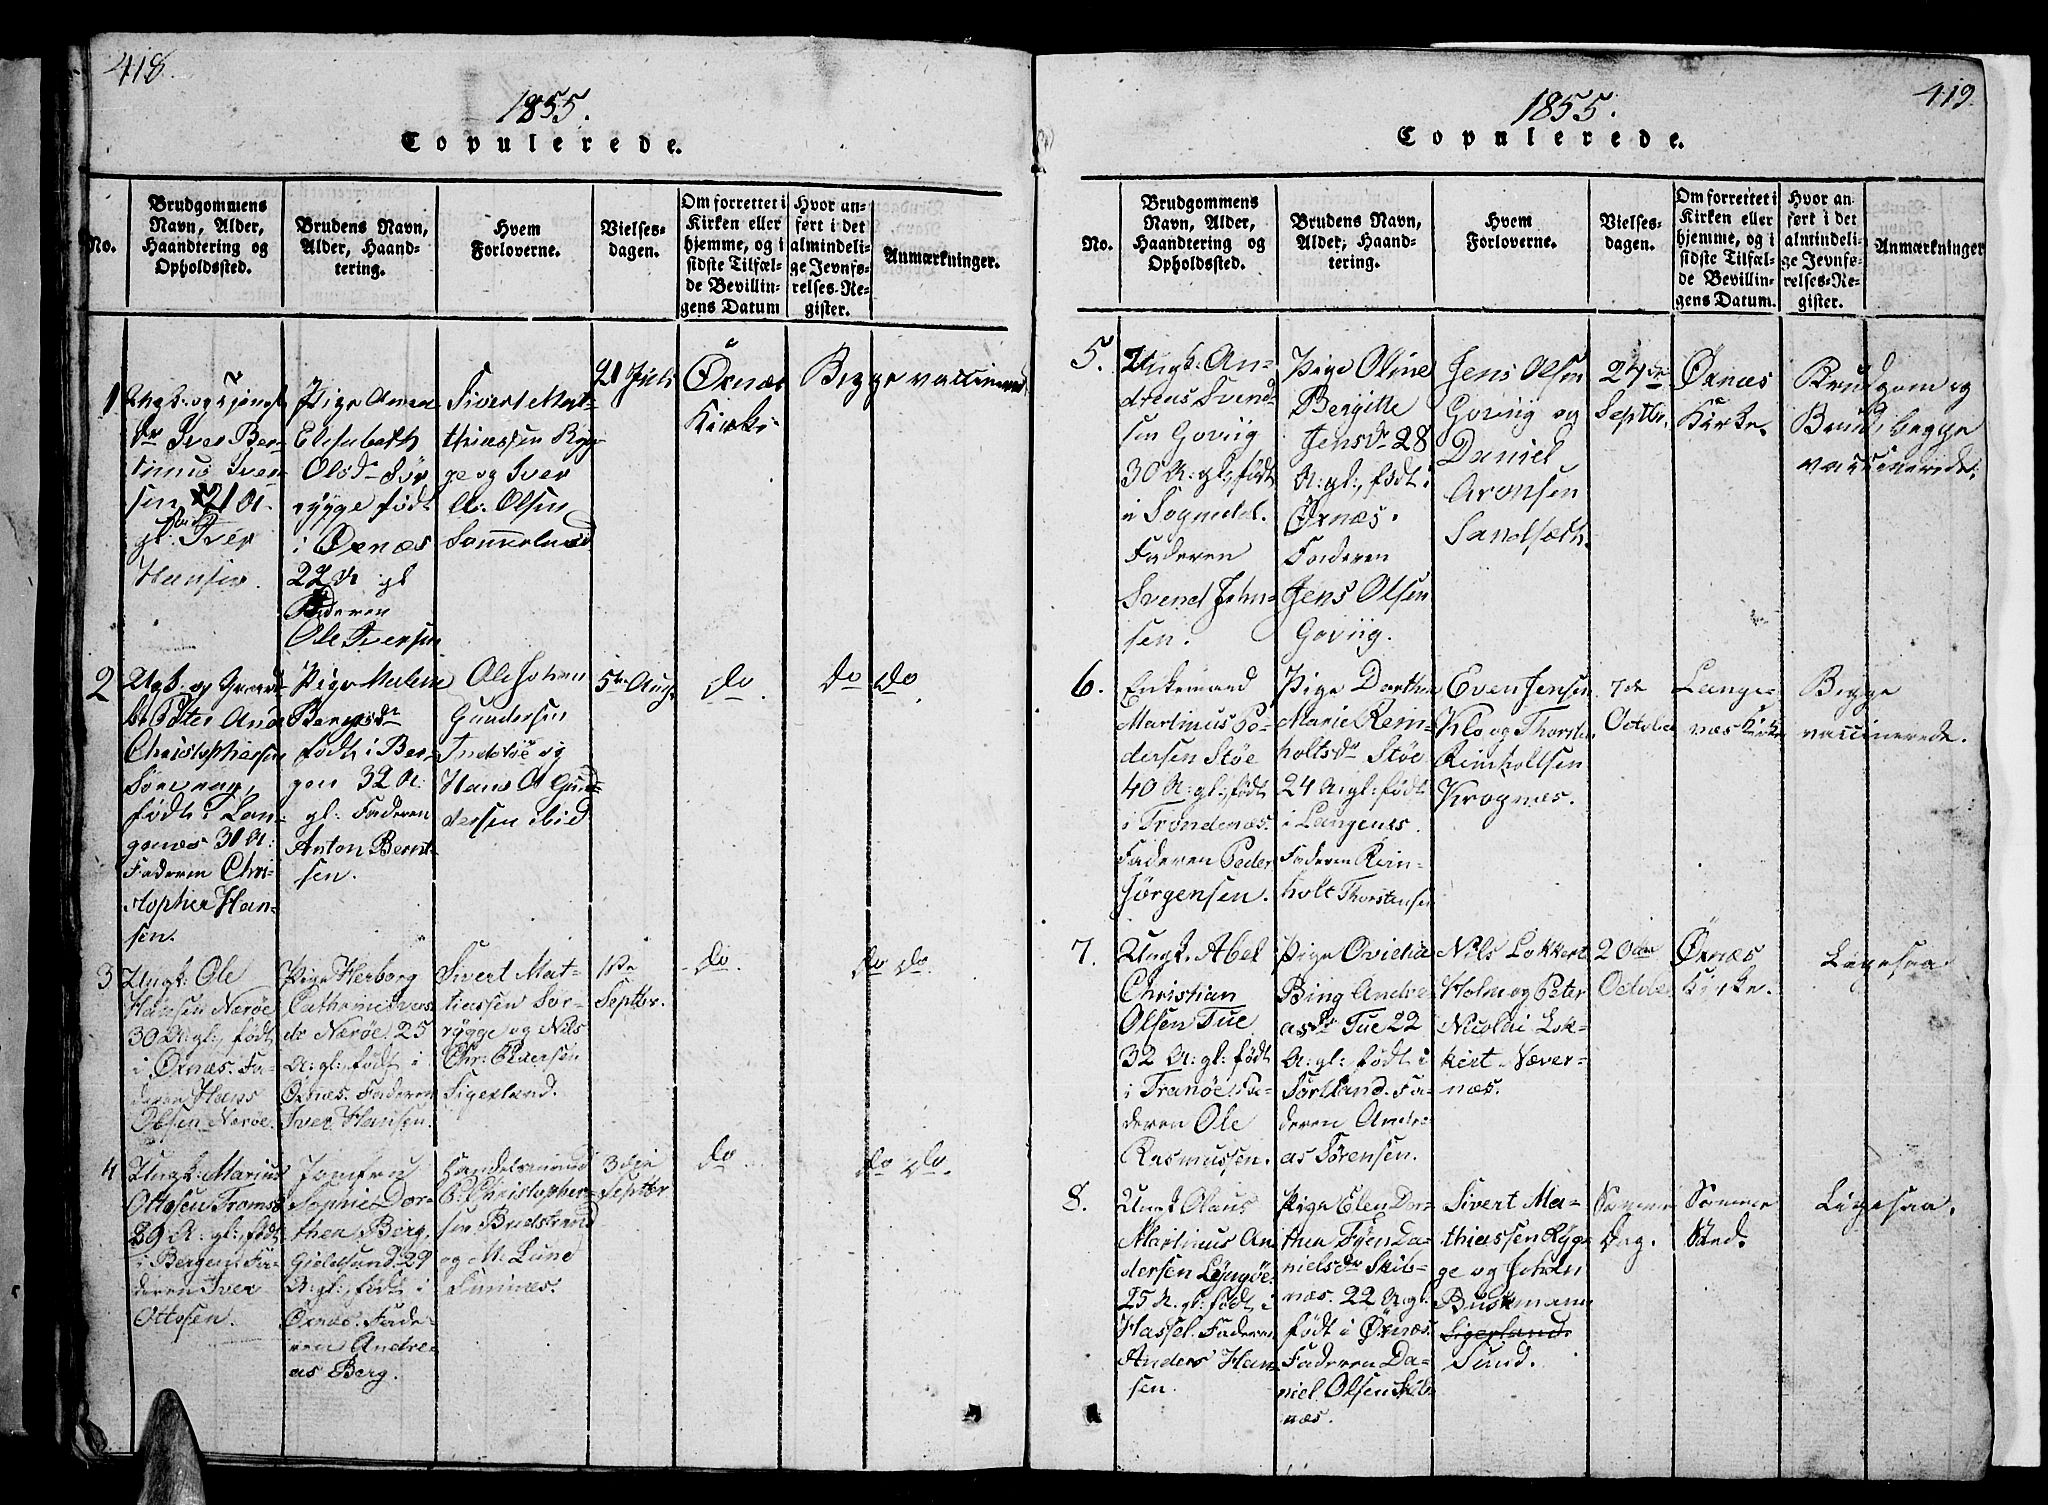 418.
1855.
Copulerede.
No.
Brudgommens
Navn, Alder,
Haandtering og
Opholdssted.
Brudens Navn,
Alder, Haand-
tering.
Hvem
Forloverne.
Vielses-
dagen.
Om forrettet i
Kirken eller
hjemme, og i
sidste Tilfæl-
de Bevillin-
gens Datum
Hvor an-
ført i det
almindeli-
ge Jevnfø-
relses-Re-
gister.
Anmærkninger.
1
Ungk: og
Iver Ber-
timus Iver-
sen 21 A.
gl: Iver
Hansen.
Pige Anna
Elisabeth
Olsdr Sør
rygge født
i Øxnæs
22 A gl
Faderen
Ole Iversen
Sivert Mat-
thiassen Ryg-
ge og Iver
A: Olsen
21 Juli
Øxnæs
Kirke
Begge vaccinered
2
Ungk: og
Peter
Christophersen
født i Lan-
genæs 31 A:
Faderen Chri-
stopher Han-
sen.
Pige Malene
Berntsdr
født i Ber-
gen 32 A:
gl: Faderen
Anton Bernt-
sen.
Ole Johan
Gundersen
og
Hans A Gun-
dersen ibid
5te Aug.
do
do do
3
Ungk: Ole
Hansen Nærøe
30 A: gl:, født
i Øxnæs. Fa-
deren Hans
Olsen Nærøe.
Pige Herborg
Cathrine Ivers
dr Nærøe 25
A: gl: født i
Øxnæs. Faderen
Iver Hansen.
Sivert Mat-
tiassen Sør-
rygge og Nils
Chr: Pedersen
Sigerland.
Septbr.
do.
do do.
4
Ungk: Marius
Ottosen Tromsø
29 A: gl:, født
i Bergen Fa-
deren Iver
Ottosen.
Jomfru
Sophie Dor-
thea Berg,
Gieldsund 29
A: gl:, født i
Øxnæs. Fade-
ren Andre-
as Berg.
Handelsmand
P: Christopher-
sen
og M. Lund
3die
Septbr
do
do do.
419.
1855.
Copulerede.
No.
Brudgommens
Navn, Alder,
Haandtering og
Opholdssted.
Brudens Navn,
Alder, Haand-
tering.
Hvem
Forloverne.
Vielses-
dagen.
Om forrettet i
Kirken eller
hjemme, og i
sidste Tilfæl-
de Bevillin-
gens Datum.
Hvor an-
ført i det
almindeli-
ge Jevnfø-
relses-Re-
gister.
Anmærkninger
5.
Ungk: An-
dreas Svend-
sen Goviig
30 A: gl:, født
i Sogndal.
Faderen
Svend John-
sen.
Pige Oline
Bergitte
Jensdr 28
A: gl:, født i
Øxnæs.
Faderen
Jens Olsen
Goviig.
Jens Olsen
Goviig og
Daniel
Aronsen
Sandsæth.
24de
Septbr.
Øxnæs
Kirke.
Brudgom og
Brud, begge
vaccinerede.
6.
Enkemand
Martinus Pe-
dersen Støe
40 A: gl:, født
i Trondenæs.
Faderen Peder
Jørgensen.
Pige Dorthea
Marie Rein-
holtsdr Støe
24 A: gl: født
i Langenes.
Faderen Rein-
holt Thorstensen
Even Jensen
Klo og Thorsten
Reinholtsen
Krognæs.
7de
October
Lange-
næs Kirke
Begge
vaccinerede.
7.
Ungk. Abel
Christian
Olsen Tue
32 A: gl: født
i Tranøe. Fa-
deren Ole
Rasmussen.
Pige Ovidia
Bing Andre-
asdr Tue 22
A: gl: født i
Sortland. Fa-
deren Andre-
as Sørensen.
Nils Lokkert
Holm og Peter
Nicolai Lok-
kert Næver-
næs.
20de
October
Øxnæs
Kirke.
Ligesaa
8.
Ungk Olaus
Martinus An
dersen Lyngøe.
25 A. gl: født i
Hassel. Faderen
Anders Han-
sen.
Pige Elen Do-
thea Fyen Da-
nielsdr Skib-
næs. 22 A gl:
født i Øxnæs.
Faderen Da-
niel Olsen Skib-
næs.
Sivert Ma-
thiassen Ryg-
ge og Johan
Buskmann
Sigerland.
Sund.
Samme
Dag.
Samme
Sted.
Ligesaa.